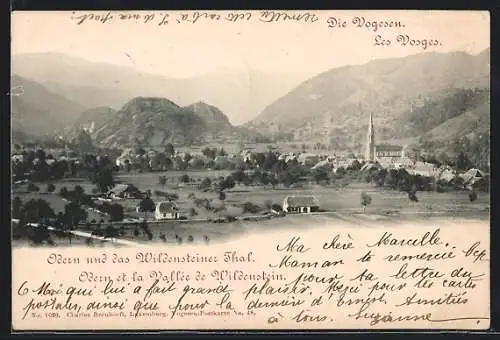 Die Vogesen.
Les Vosges.
Odern und das Wildensteiner Thal.
Odern et la Vallée de Wildenstein.
No. 1020. Charles Bernhoeft, Luxemburg. Vogesen-Postkarte No. 48.
Ma chère Marcelle..
Maman te remercie bcp.
pour ta lettre du
6 Mai qui lui a fait grand plaisir, merci pour les cartes
postales, ainsi que pour la dernière d'
Amitiés
à tous. Suzanne